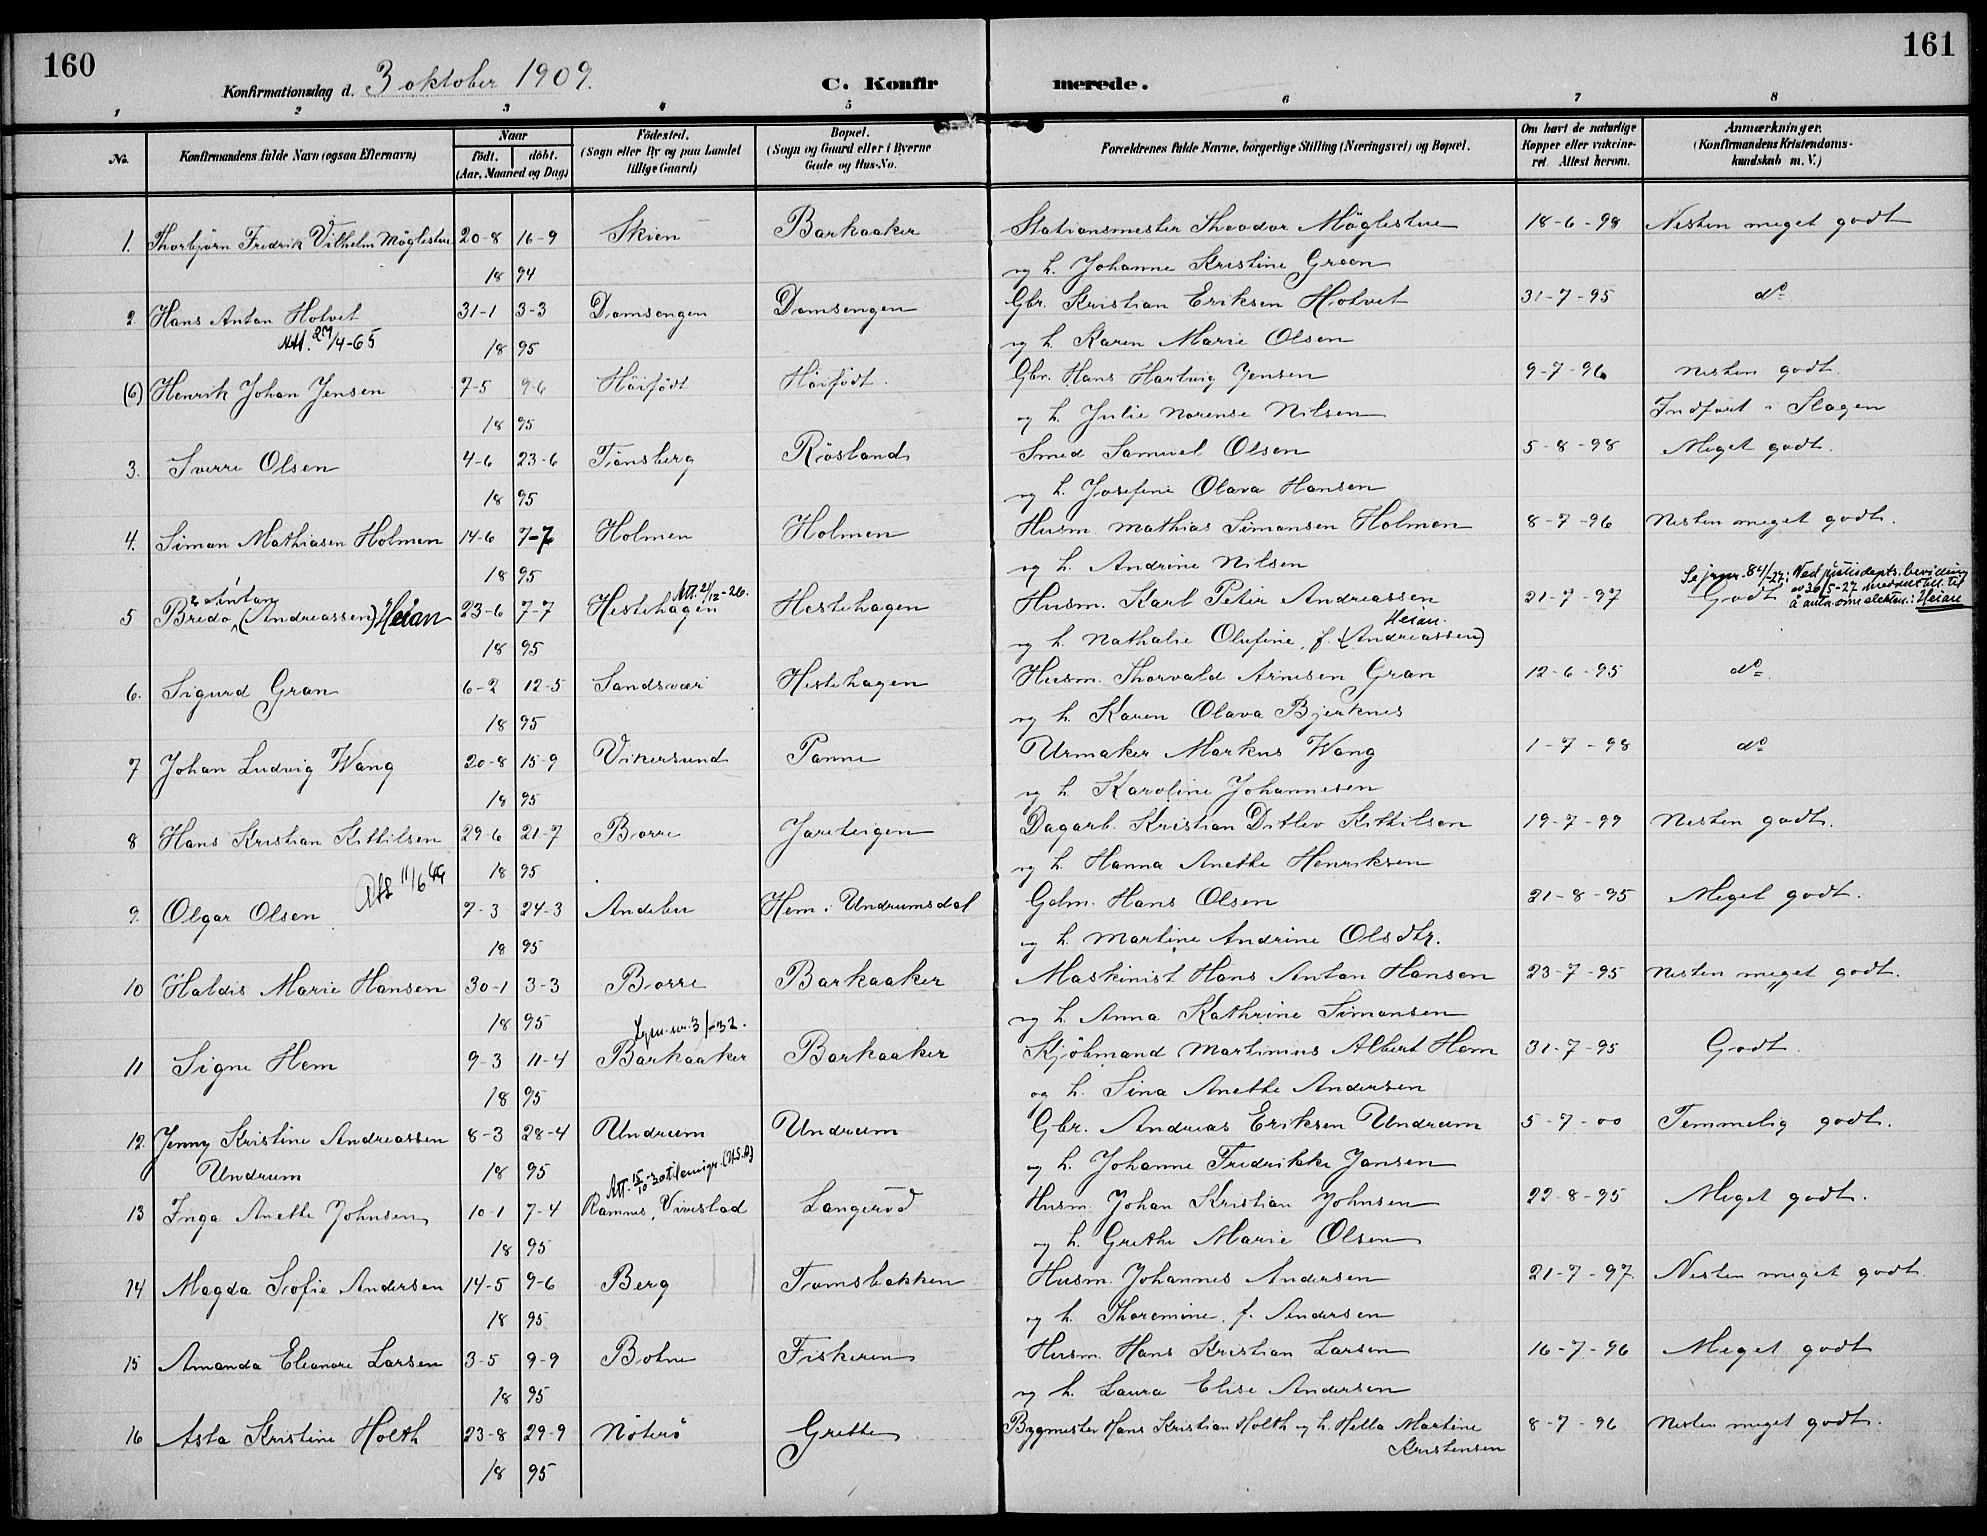 160
161
Konfirmationsdag d. 3 oktober 1909.
C. Konfir merede.
1 2 3 4 5 6 7 8
No.
Konfirmandens fulde Navn (ogsaa Efternavn)
Naar
født. døbt.
(Aar, Maaned og Dag)
Fødested.
(Sogn eller By og paa Landet
tillige Gaard)
Bopæl.
(Sogn og Gaard eller i Byerne
Gade og Hus-No.
Forældrenes fulde Navne, borgerlige Stilling (Næringsvei) og Bopæl.
Om havt de naturlige
Kopper eller vakcine-
ret. Attest herom.
Anmærkninger.
(Konfirmandens Kristendoms-
kundskab m. V.)
1. Thorbjörn Fredrik Vilhelm Møglestue 20-8 16-9 Skien Barkaaker Stationsmester Theodor Møglestue 18-6-98 Nesten meget godt
18 94 og h. Johanne Kristine Green
2 Hans Anton Holvet 31-1 3-3 Domsengen Domsengen Gbr. Kristian Eriksen Holvet 31-7-95 do
Att. 27/4-65 18 95 og h. Karen Marie Olsen
(6) Henrik Johan Jensen 7-5 9-6 Höifödt Höifödt. Gbr. Hans Hartvig Jensen 9-7-96 nesten godt.
18 95 og h. Julie Norense Nilsen Indført i Slagen
3. Sverre Olsen 4-6 23-6 Tönsberg Røsland Smed Samuel Olsen 5-8-98 Meget godt.
18 95 og h. Josefine Olava Hansen
4. Simon Mathiasen Holmen 14-6 7-7 Holmen Holmen Husm. Mathias Simonsen Holmen 8-7-96 Nesten meget godt.
18 95 og h. Andrine Nilsen
Se jrnr. 84/-27: Ved justisdepts. bevilling
Anton Att. 2/12-26. av 30/5-27 meddelt till. til
5 Bredo (Andreassen) Heian 23-6 7-7 Hestehagen Hestehagen Husm. Karl Peter Andreassen 21-7-97 Godt å anta som slektsn.: Heian
Heian.
18 95 og h. Nathalie Olufine, f. (Andreassen)
6. Sigurd Gran 6-2 12-5 Sandsvær Hestehagen Husm. Thorvald Arnesen Gran 12-6-95 do.
18 95 og h. Karen Olava Bjerknes
7 Johan Ludvig Wang 20-8 15-9 Vikersund Panne Urmaker Markus Wang 1-7-98 do
18 95 og h. Karoline Johannesen
8 Hans Kristian Kittilsen 29-6 21-7 Borre Jareteigen Dagarb. Kristian Ditlev Kittilsen 19-7-99 Nesten godt.
Att 11/6 49 18 95 og h. Hanna Anethe Henriksen
9. Olgar Olsen 7-3 24-3 Andebu Hem i Undrumsdal Gdm. Hans Olsen 21-8-95 Meget godt.
18 95 og h. Martine Andrine Olsdtr.
10 Haldis Marie Hansen 30-1 3-3 Borre Barkaaker Maskinist Hans Anton Hansen 23-7-95 Nesten meget godt.
18 95 og h. Anna Kathrine Simonsen
3/-32.
11 Signe Hem 9-3 11-4 Barkaaker Barkaaker Kjöbmand Martinius Albert Hem 31-7-95 Godt
18 95 og h. Sina Anethe Andersen
12. Jenny Kristine Andreassen 8-3 28-4 Undrum Undrum Gbr. Andreas Eriksen Undrum 5-7-00 Temmelig godt.
Undrum 18 95 og h. Johanne Fredrikke Jansen
Att. 15/10-30 til emigr. (U.S.A)
13 Inga Anethe Johnsen 10-1 7-4 Ramnes, Vivestad Langeröd Husm. Johan Kristian Johnsen 22-8-95 Meget godt.
18 95 og h. Grethe Marie Olsen
14 Magda Sofie Andersen 14-5 9-6 Berg Tomsbakken Husm. Johannes Andersen 21-7-97. Nesten meget godt
18 95 og h. Thoremine, f. Andersen
15 Amanda Eleanore Larsen 3-5 9-9 Botne Fiskeren Husm. Hans Kristian Larsen 16-7-96 Meget godt
18 95 og h. Laura Elise Andersen
16 Asta Kristine Holth 23-8 29-9 Nöterö Grette Bygmester Hans Kristian Holth og h. Hella Martine 8-7-96 Nesten meget godt.
Kristensen
18 95